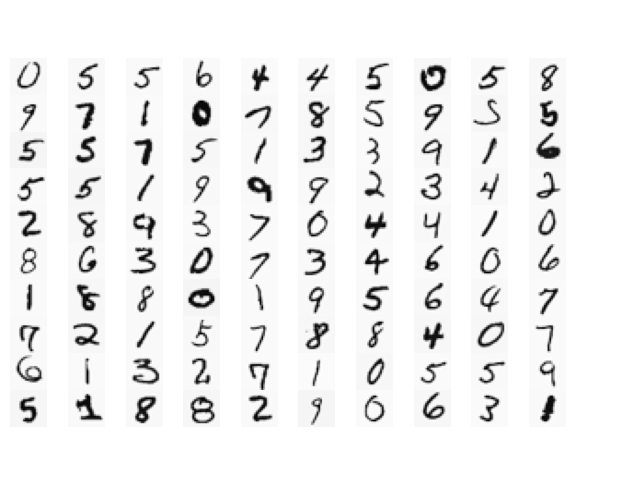 0 5 5 6 4 4 5 0 5 8
9 7 1 0 7 8 5 9 5 5
5 5 7 5 1 3 3 9 1 6
5 5 1 9 9 9 2 3 4 2
2 8 9 3 7 0 4 4 1 0
8 6 3 0 7 3 4 6 0 6
1 8 8 0 1 9 5 6 4 7
7 2 1 5 7 8 8 4 0 7
6 1 3 2 7 1 0 5 5 9
5 1 8 8 2 9 0 6 3 1